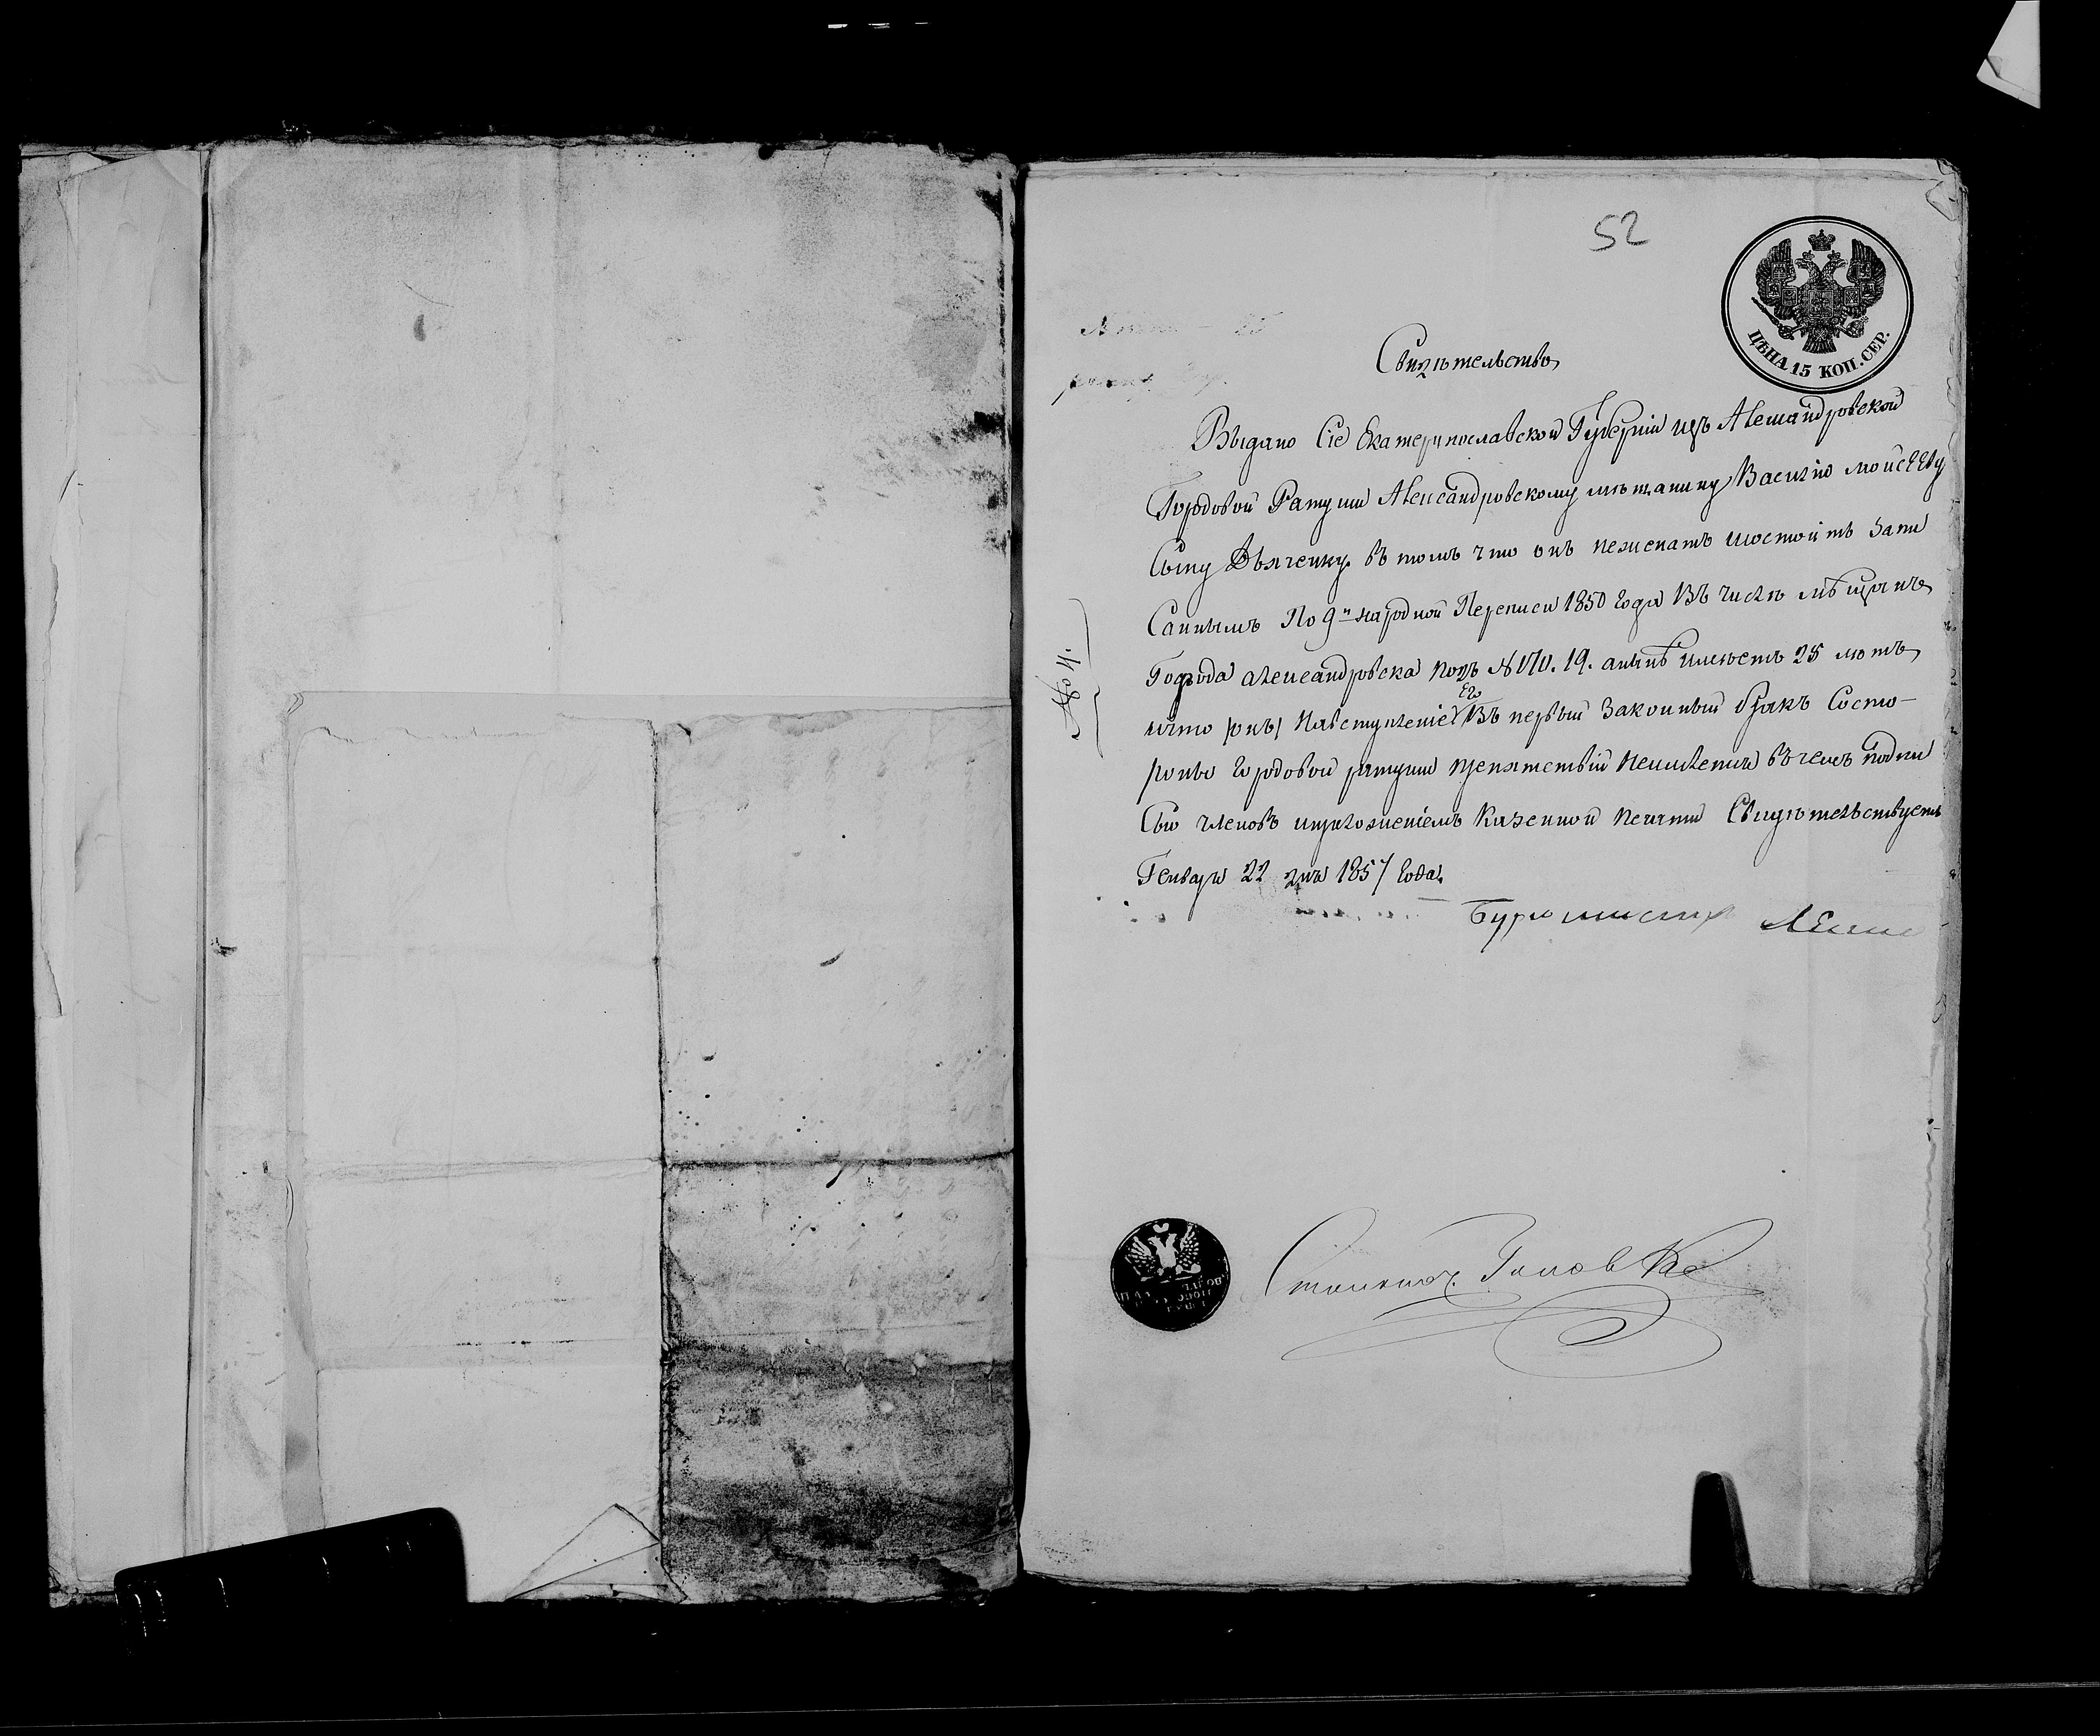 52
ЦѢНА 15 КОП. СЕР.
Свидѣтельство
Выдано Сіе Екатеринославской Губерніи изъ Александровской
Городовой Ратуши Александровскому мѣщанину Василію Мойсееву
Сыну Дьяченку. въ томъ что онъ неженатъ состоитъ Запи
Саннымъ По 9й народной Переписи 1850 года Въ числѣ мѣщанъ
Города александровска подъ № 170. 19. анынѣ имѣетъ 25 лѣтъ
что /онъ/ Навступленіе Его Въ первый Законный бракъ Состо-
роны городовой ратуши препятствій неимѣетъ въ чемъ подпи
Сью членовъ иприложеніемъ Казенной печати Свидѣтельствуетъ
Генваря 22 дня 1857 года.
Бургомистръ
№ 84.